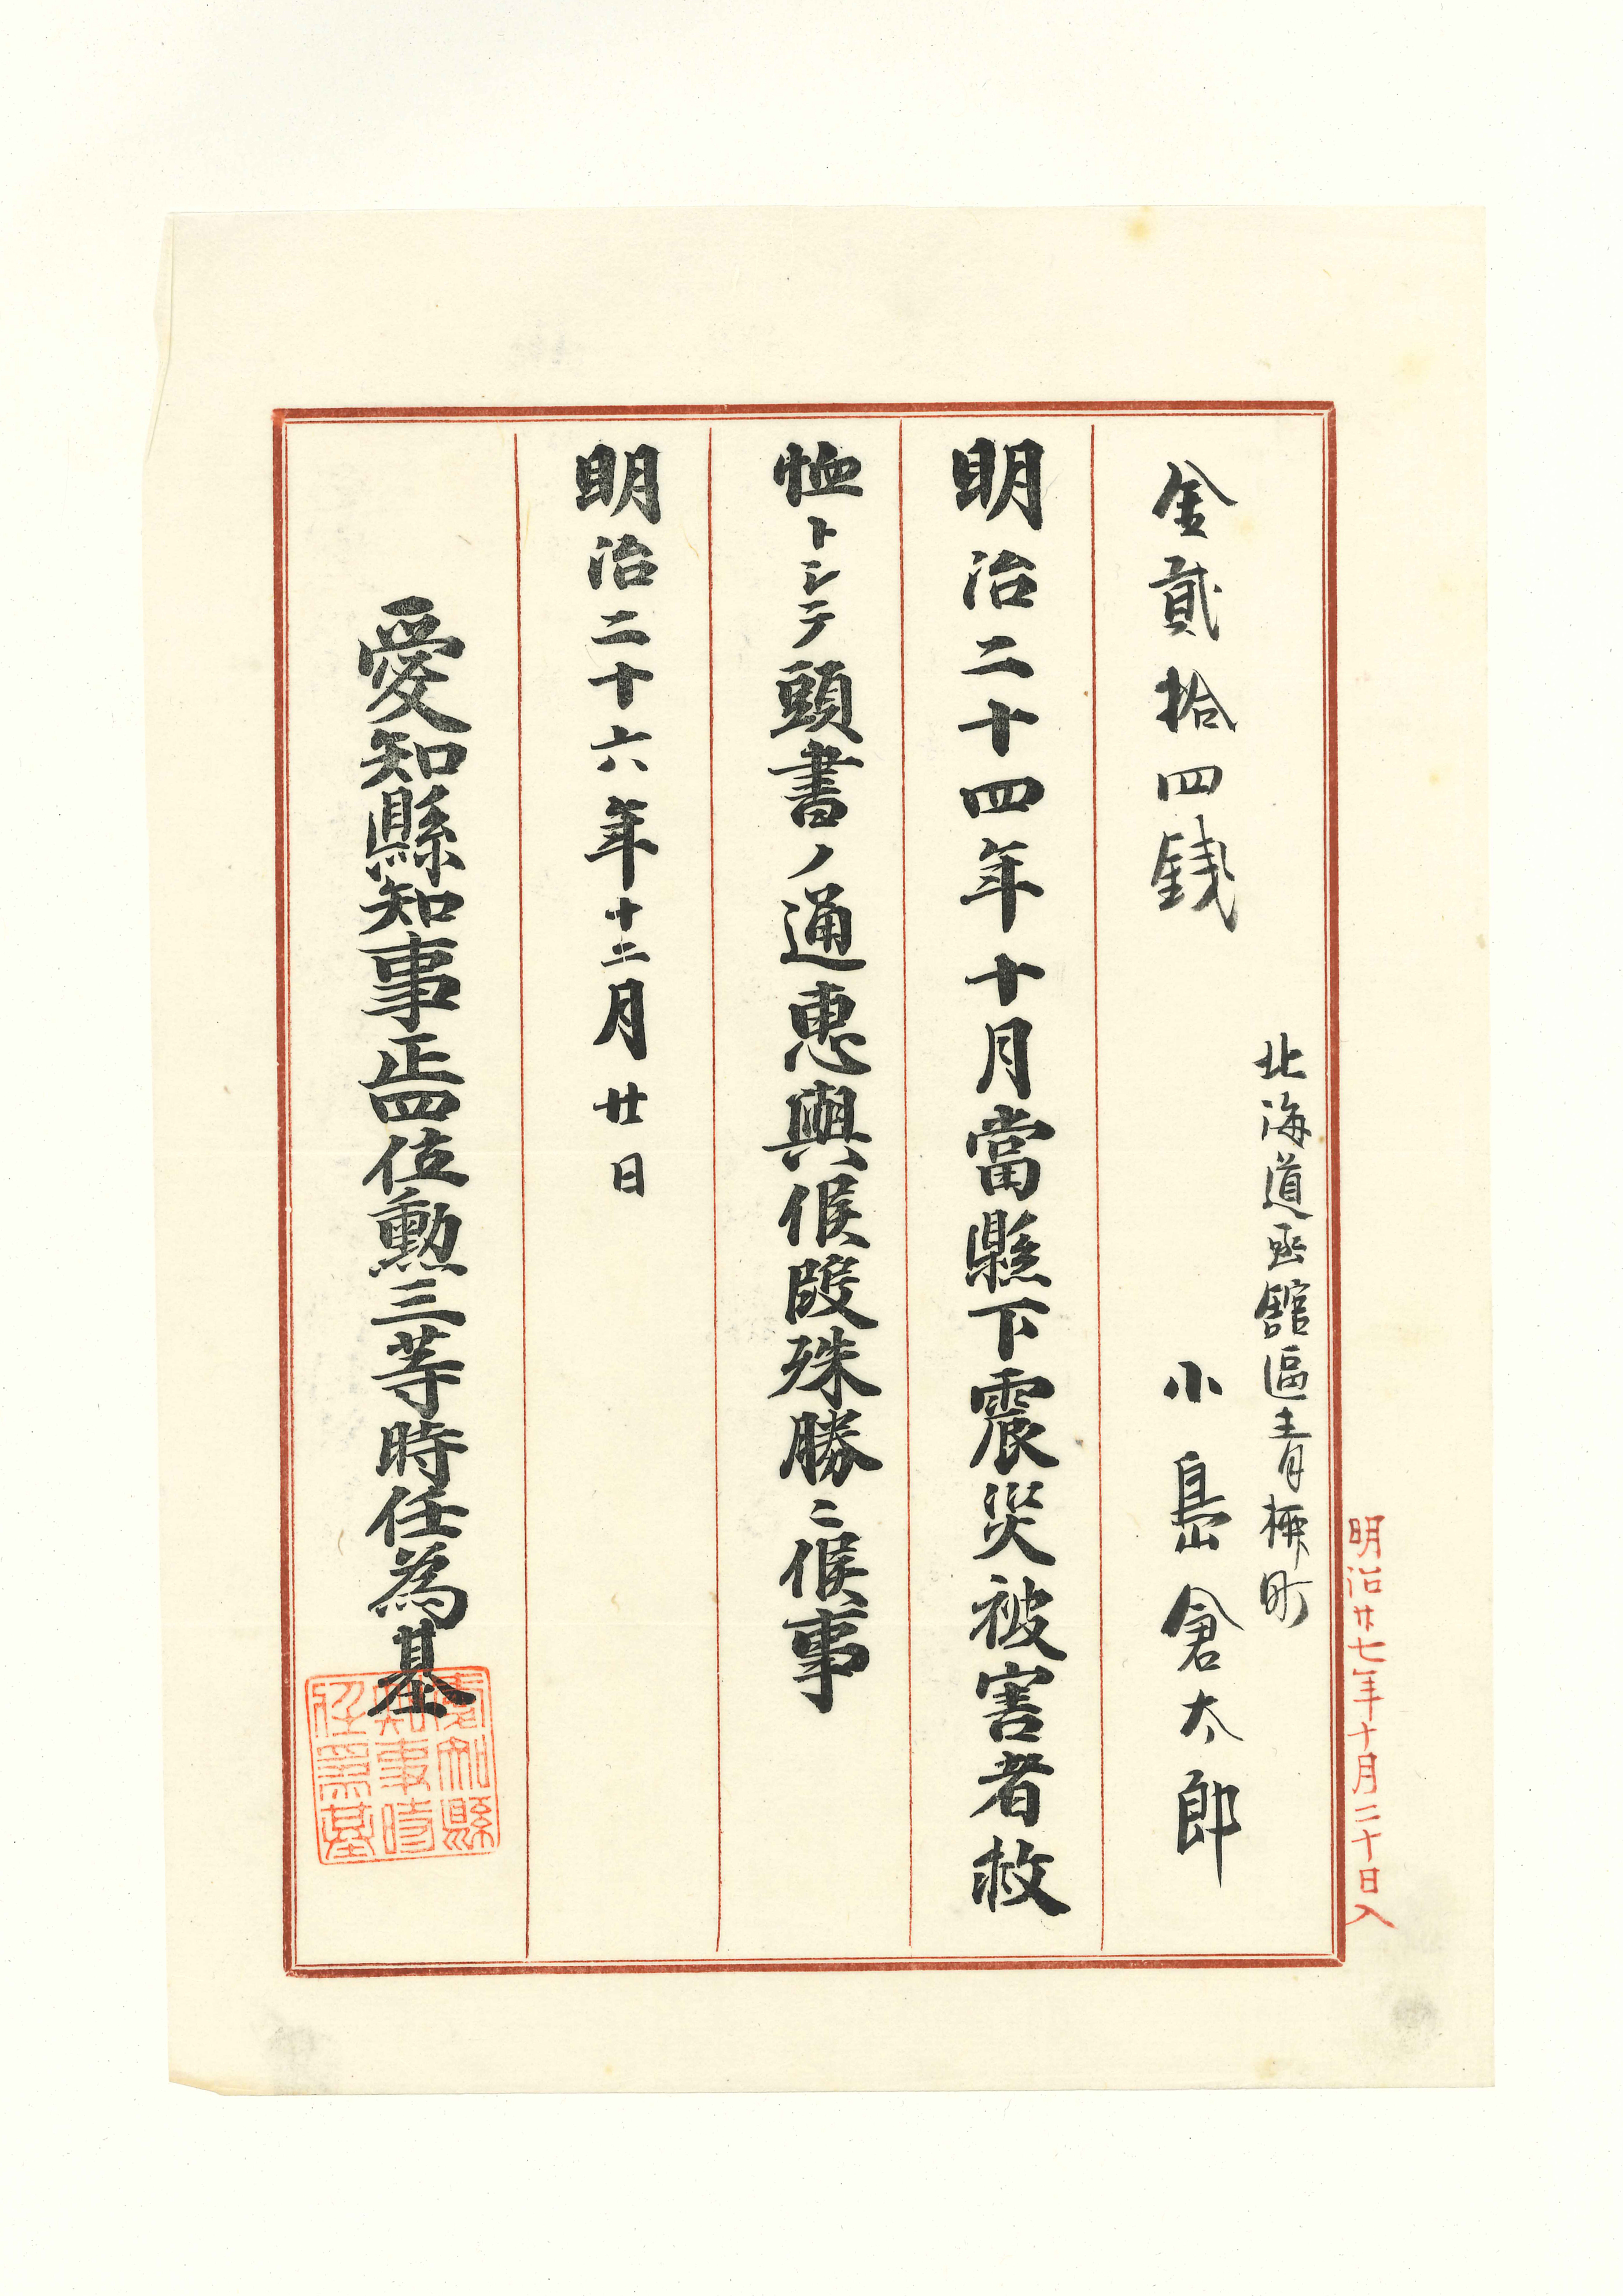 明治廿七年十月二十日入
北海道函館區青柳町
金貳拾四銭
小島倉太郎
明治二十四年十月當縣下震災被害者救
恤トシテ頭書ノ通惠與候段殊勝ニ候事
明治二十六年十二月廿日
愛知縣知事正四位勲三等時任為基
愛知縣
知事時
任爲基